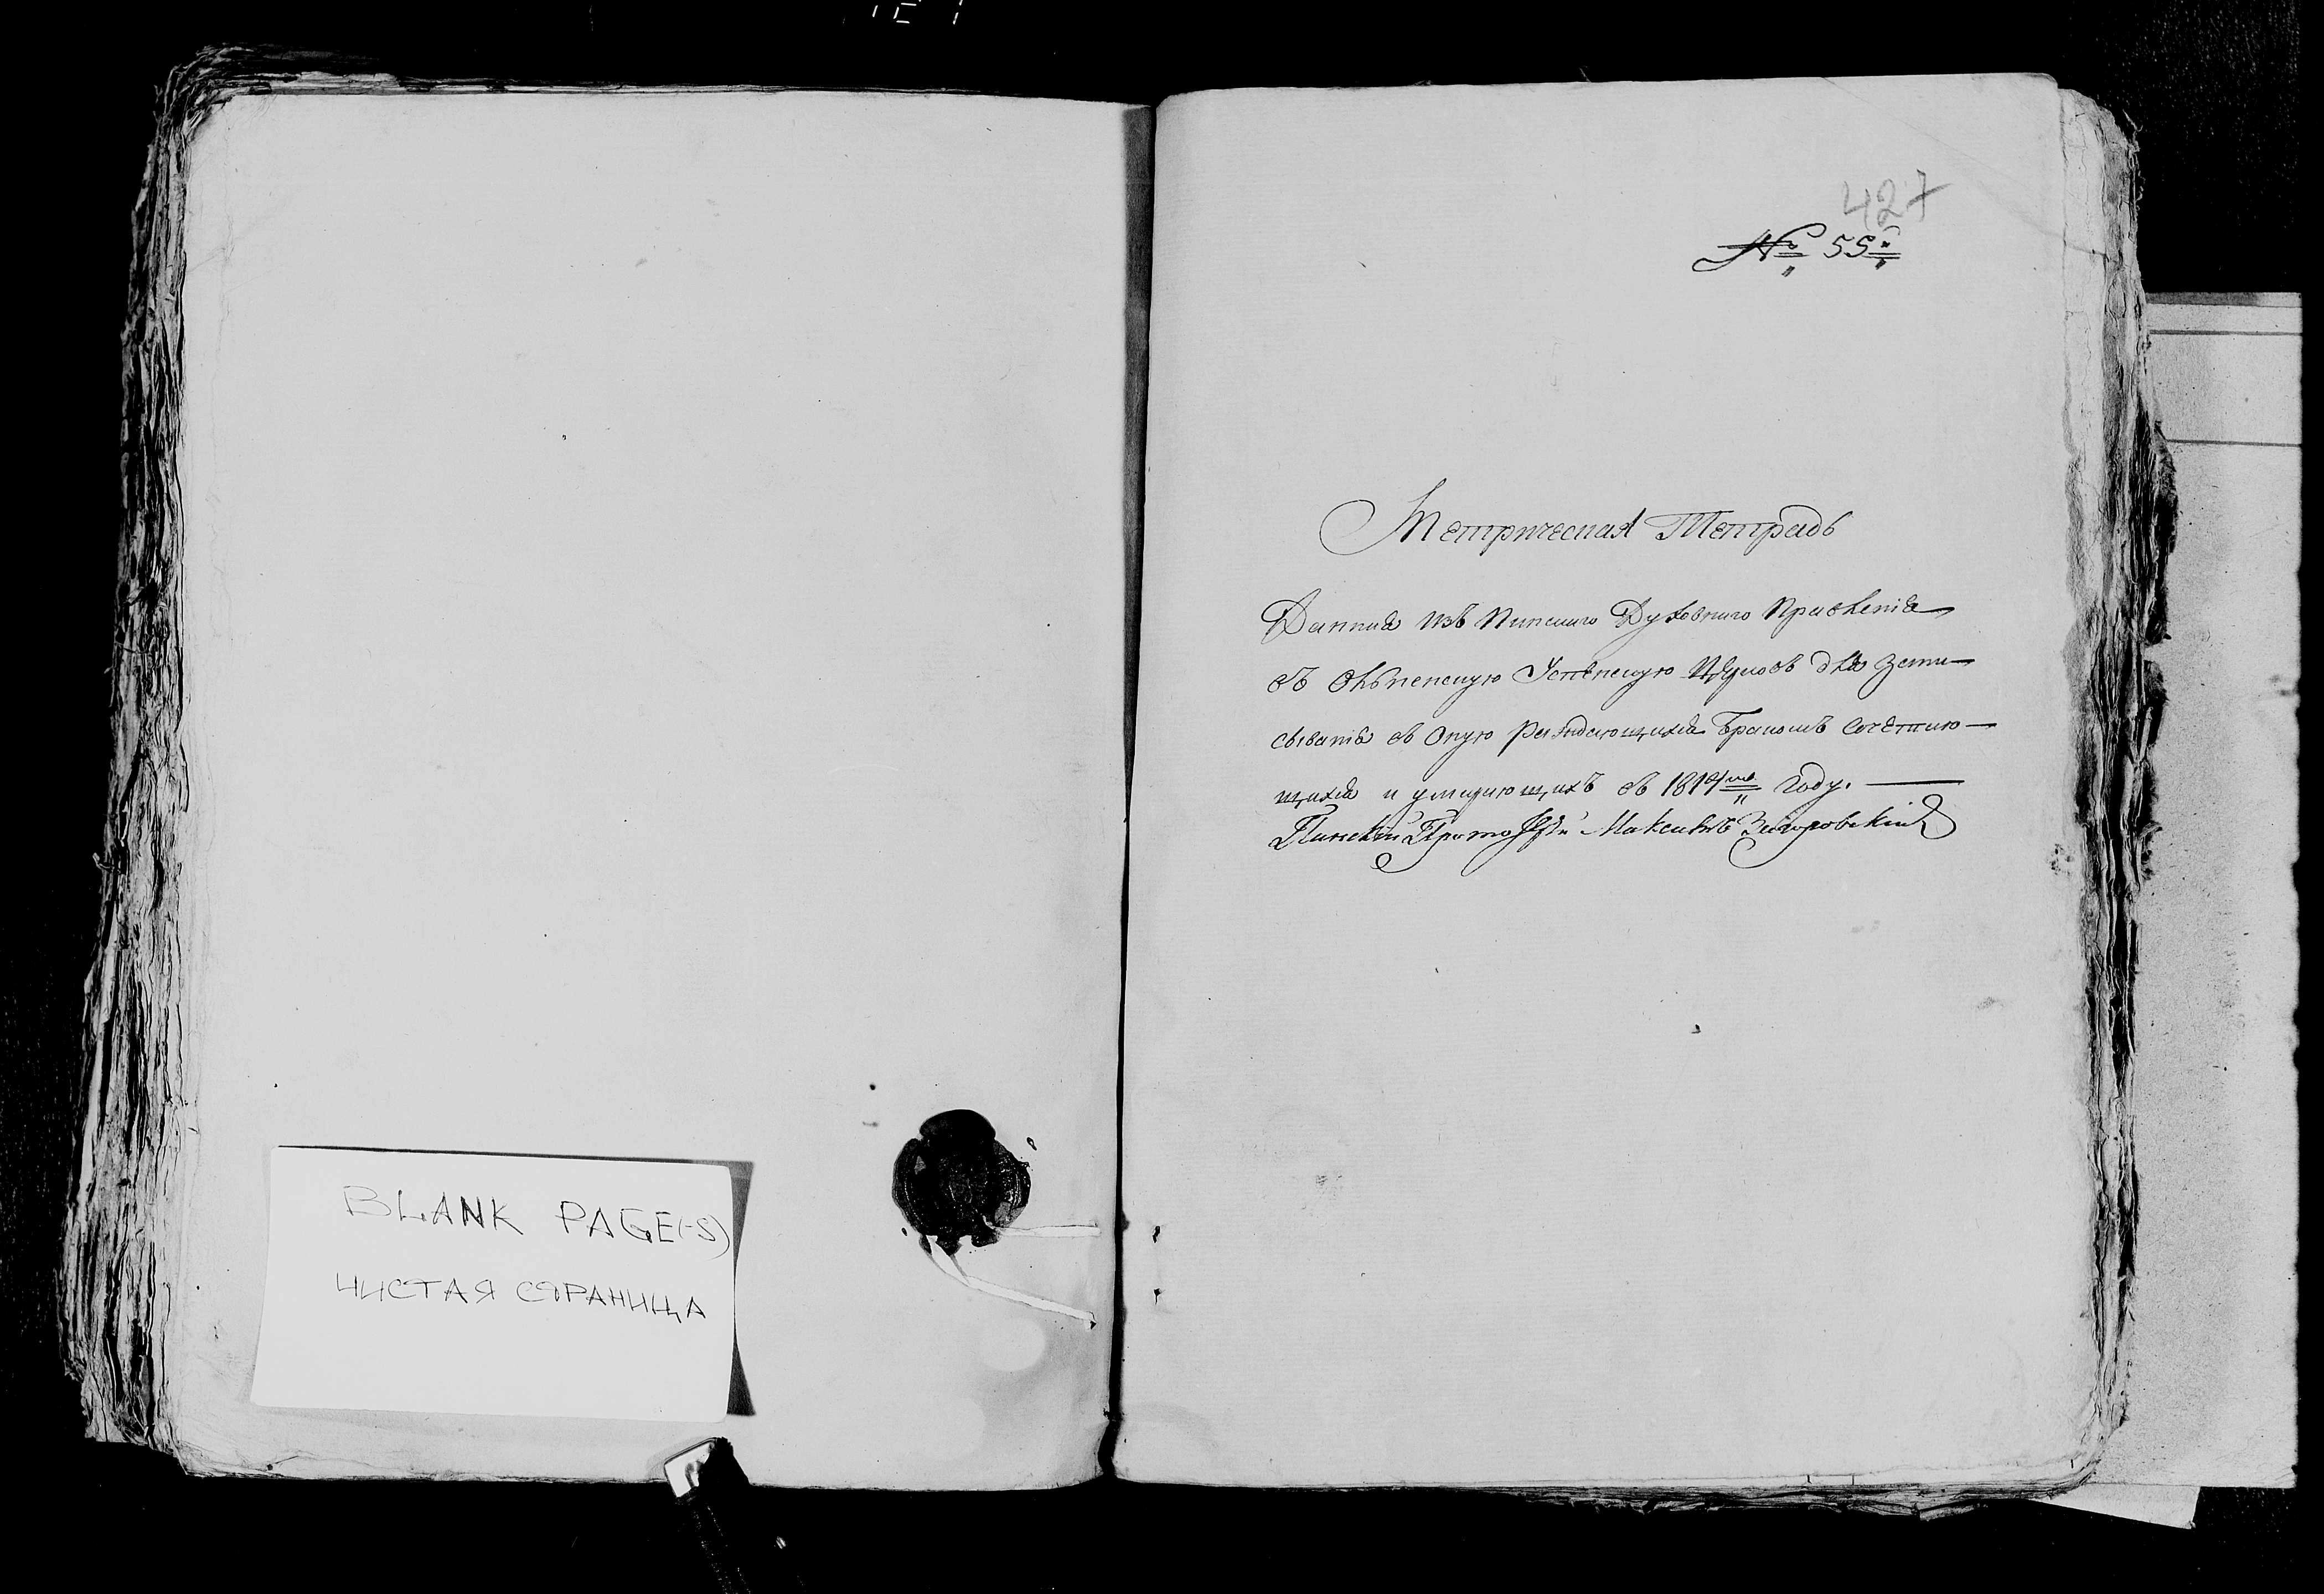 BLANK PAGE(-S)
ЧИСТАЯ СТРАНИЦА
427
№ 55й
Метрическая Тетрадь
Данная изъ Пинскаго Духовнаго Правленія
въ Успенскую Церковь для запи—
сыванія въ Оную раждающихся Бракомъ сочетаю—
щихся и умирающихъ въ году. —
Пинскій Максимъ